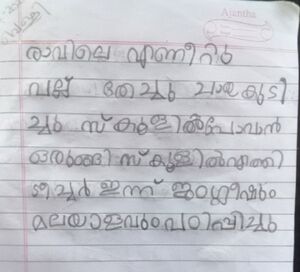 Ajantha
രാവിലെ എണീറ്റു
പല്ല് തേച്ചു ചായകുടി
ച്ചു സ്കൂളിൽപോവാൻ
ഒരുങ്ങി സ്കൂളിൽഎത്തി
ടീച്ചർ ഇന്ന് ഇംഗ്ലീഷും
മലയാളവും പഠിപ്പിച്ചു